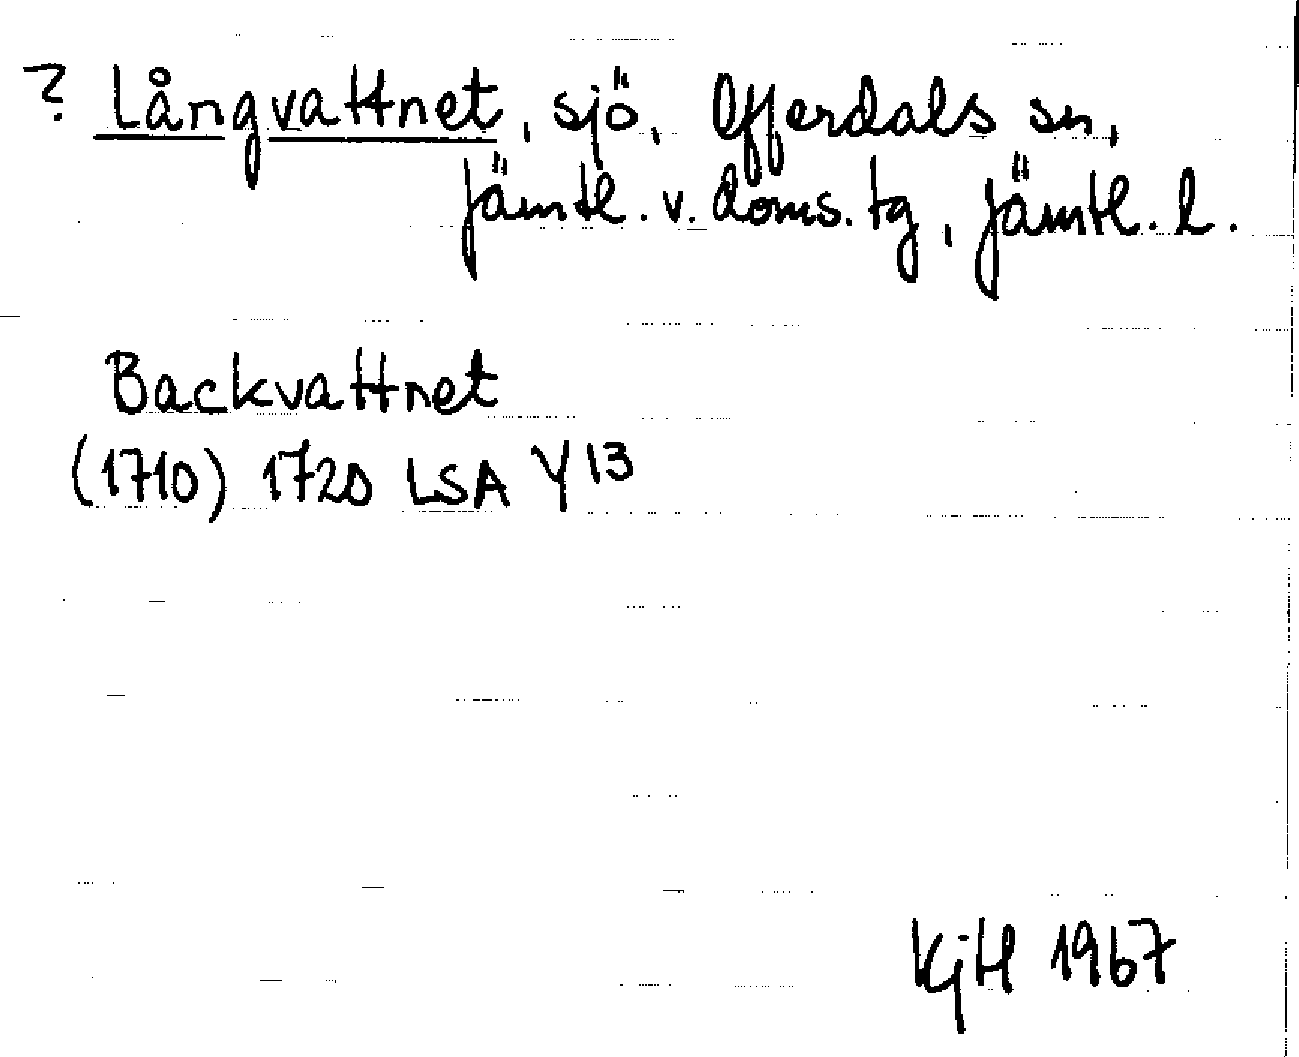 ? Långvattnet, sjö, Offerdals sn,
Jämtl. v. doms. tg, Jämtl. l.
Backvattnet
(1710) 1720 LSA Y13
KjH 1967